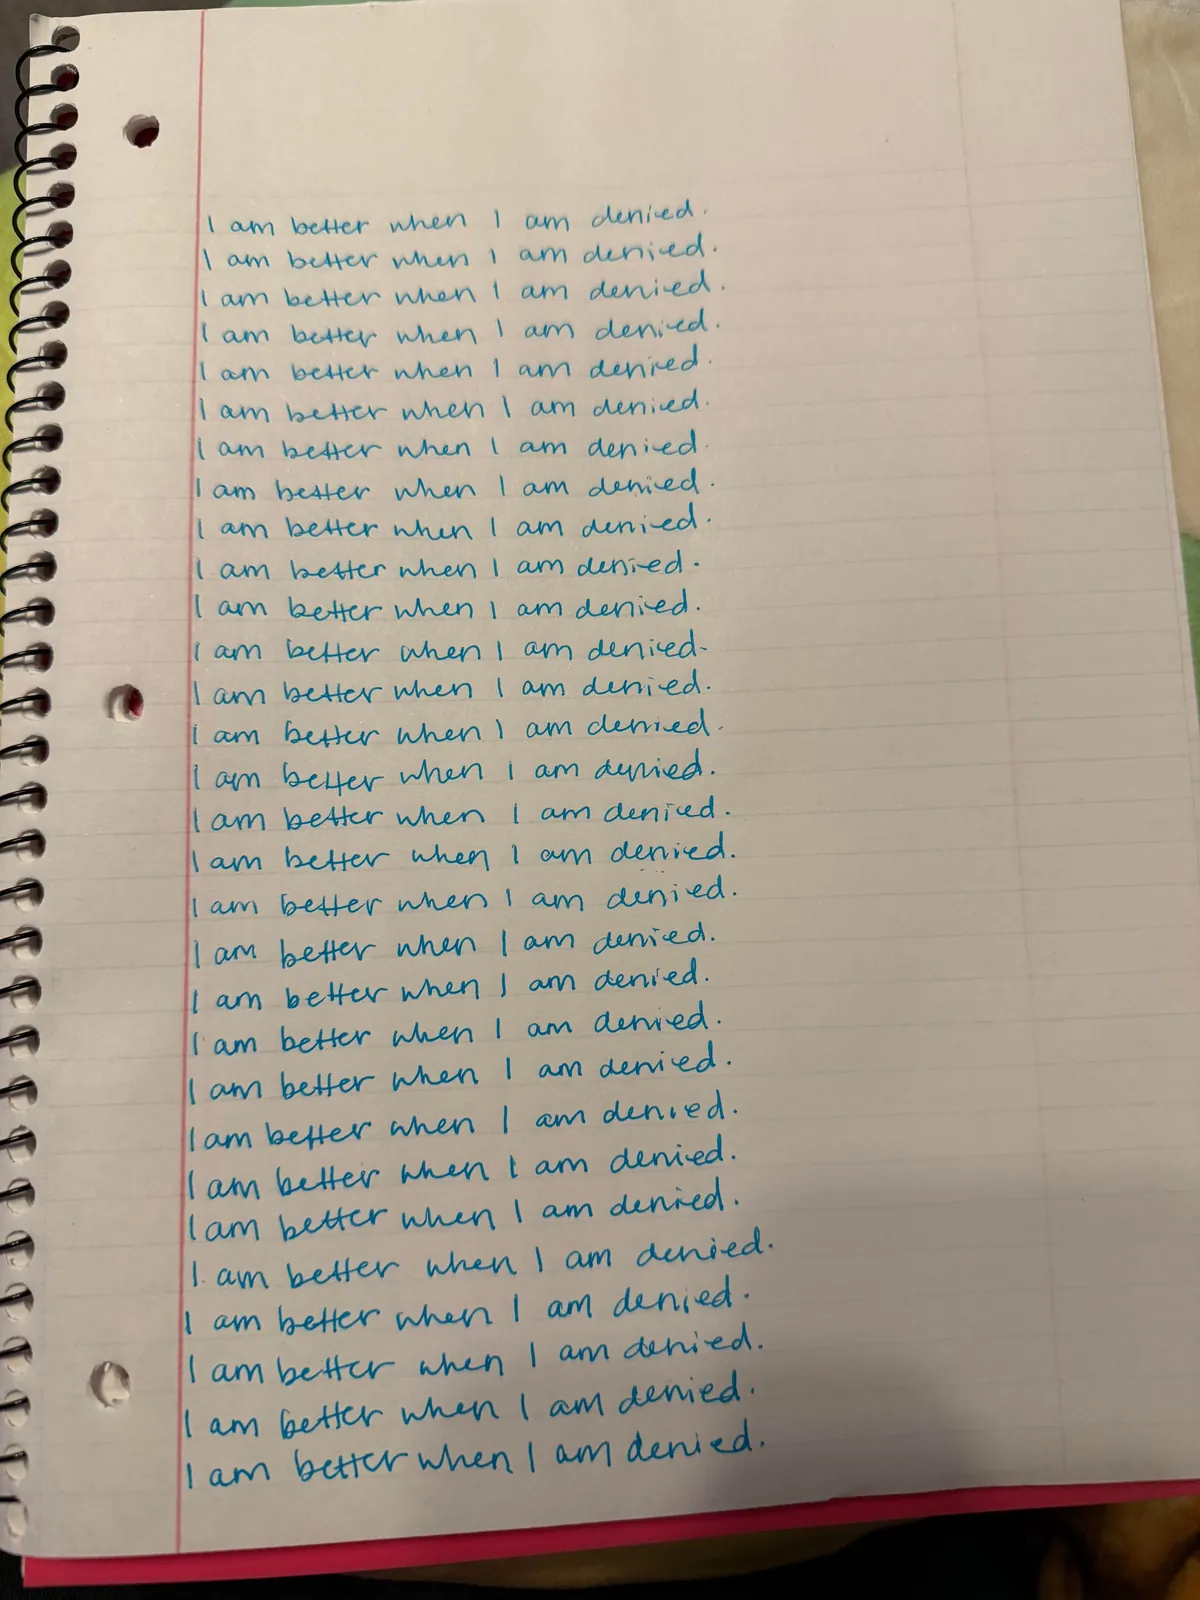 I am better when I am denied.
I am better when I am denied.
I am better when I am denied.
I am better when I am denied.
I am better when I am denied.
I am better when I am denied.
I am better when I am denied.
I am better when I am denied.
I am better when I am denied.
I am better when I am denied.
I am better when I am denied.
I am better when I am denied.
I am better when I am denied.
I am better when I am denied.
I am better when I am denied.
I am better when I am denied.
I am better when I am denied.
I am better when I am denied.
I am better when I am denied.
I am better when I am denied.
I am better when I am denied.
I am better when I am denied.
I am better when I am denied.
I am better when I am denied.
I am better when I am denied.
I am better when I am denied.
I am better when I am denied.
I am better when I am denied.
I am better when I am denied.
I am better when I am denied.